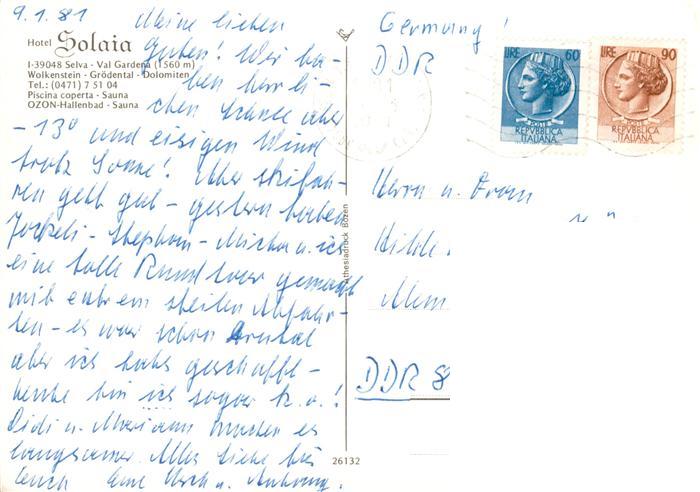 9.1.81 Meine lieben
Hotel Solaia
Guten! Wir ha-
I-39048 Selva - Val Gardena (1560 m)
Wolkenstein - Grödental - Dolomiten
ben herrli-
Tel.: (0471) 7 51 04
Piscina coperta - Sauna
chen Schnee aber
OZON-Hallenbad - Sauna
-13° und eisigen Wind
trotz Sonne! Aber skifah-
ren geht gut - gestern haben
Jockeli - Stephan - Micha u. ich
eine tolle Rundtour gemacht
mit extrem steilen Abfahr-
ten - es war schon brutal
aber ich habs geschafft -
heute bin ich sogar k.o.!
Didi u. Mariann machen es
langsamer. Alles Liebe für
Euch Eure u.
Athesiadruck Bozen
26132
Germany!
DDR
LIRE 60
POSTE
REPVBBLICA
ITALIANA
LIRE 90
POSTE
REPVBBLICA
ITALIANA
Herrn u. Frau
Hilde
DDR 8